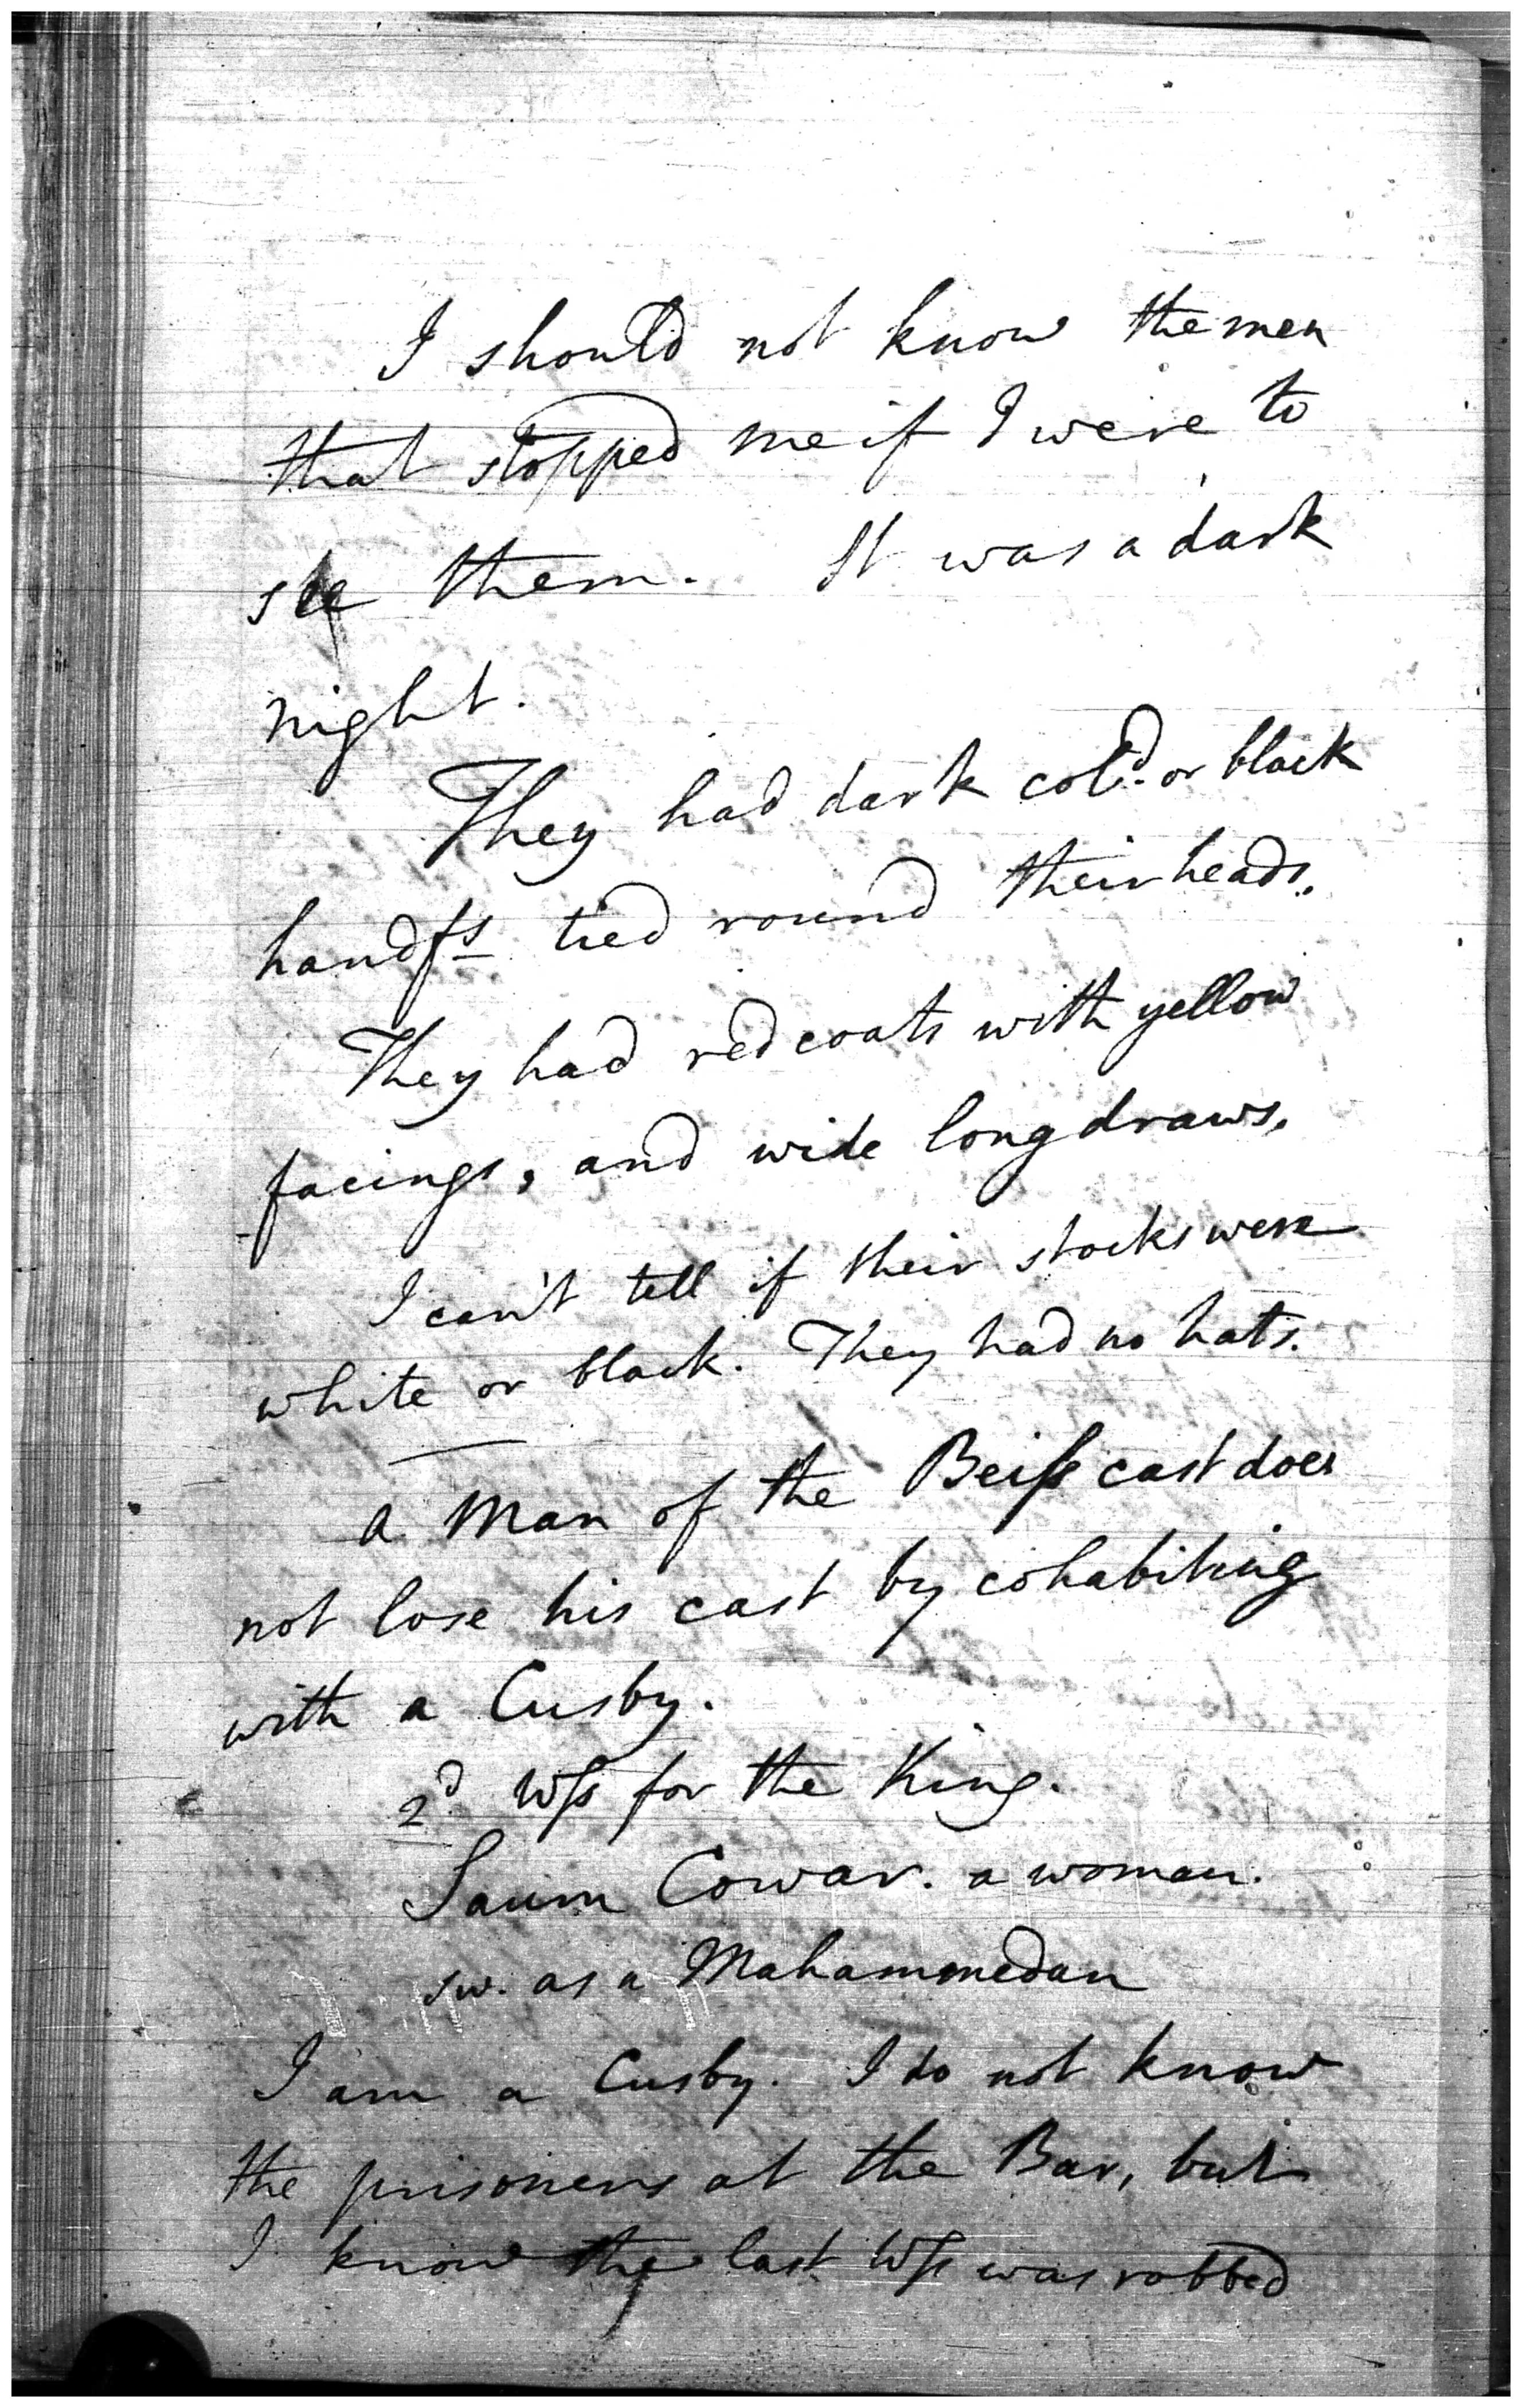 I should not know the men
that stopped me if I were to
see them. It was a dark
night.
They had dark col:d or black
handfs tied round their heads.
They had red coats with yellow
facings, and wide long draws.
I can't tell if their stocks were
white or black. They had no hats.
A Man of the Beiſs cast does
not lose his cast by cohabiting
with a Cusby.
2d Wſs for the King.
Saum Cowar. a woman.
sw. as a Mahammedan
I am a Cusby. I do not know
the prisoners at the Bar, but
I know the last Wſs was robbed